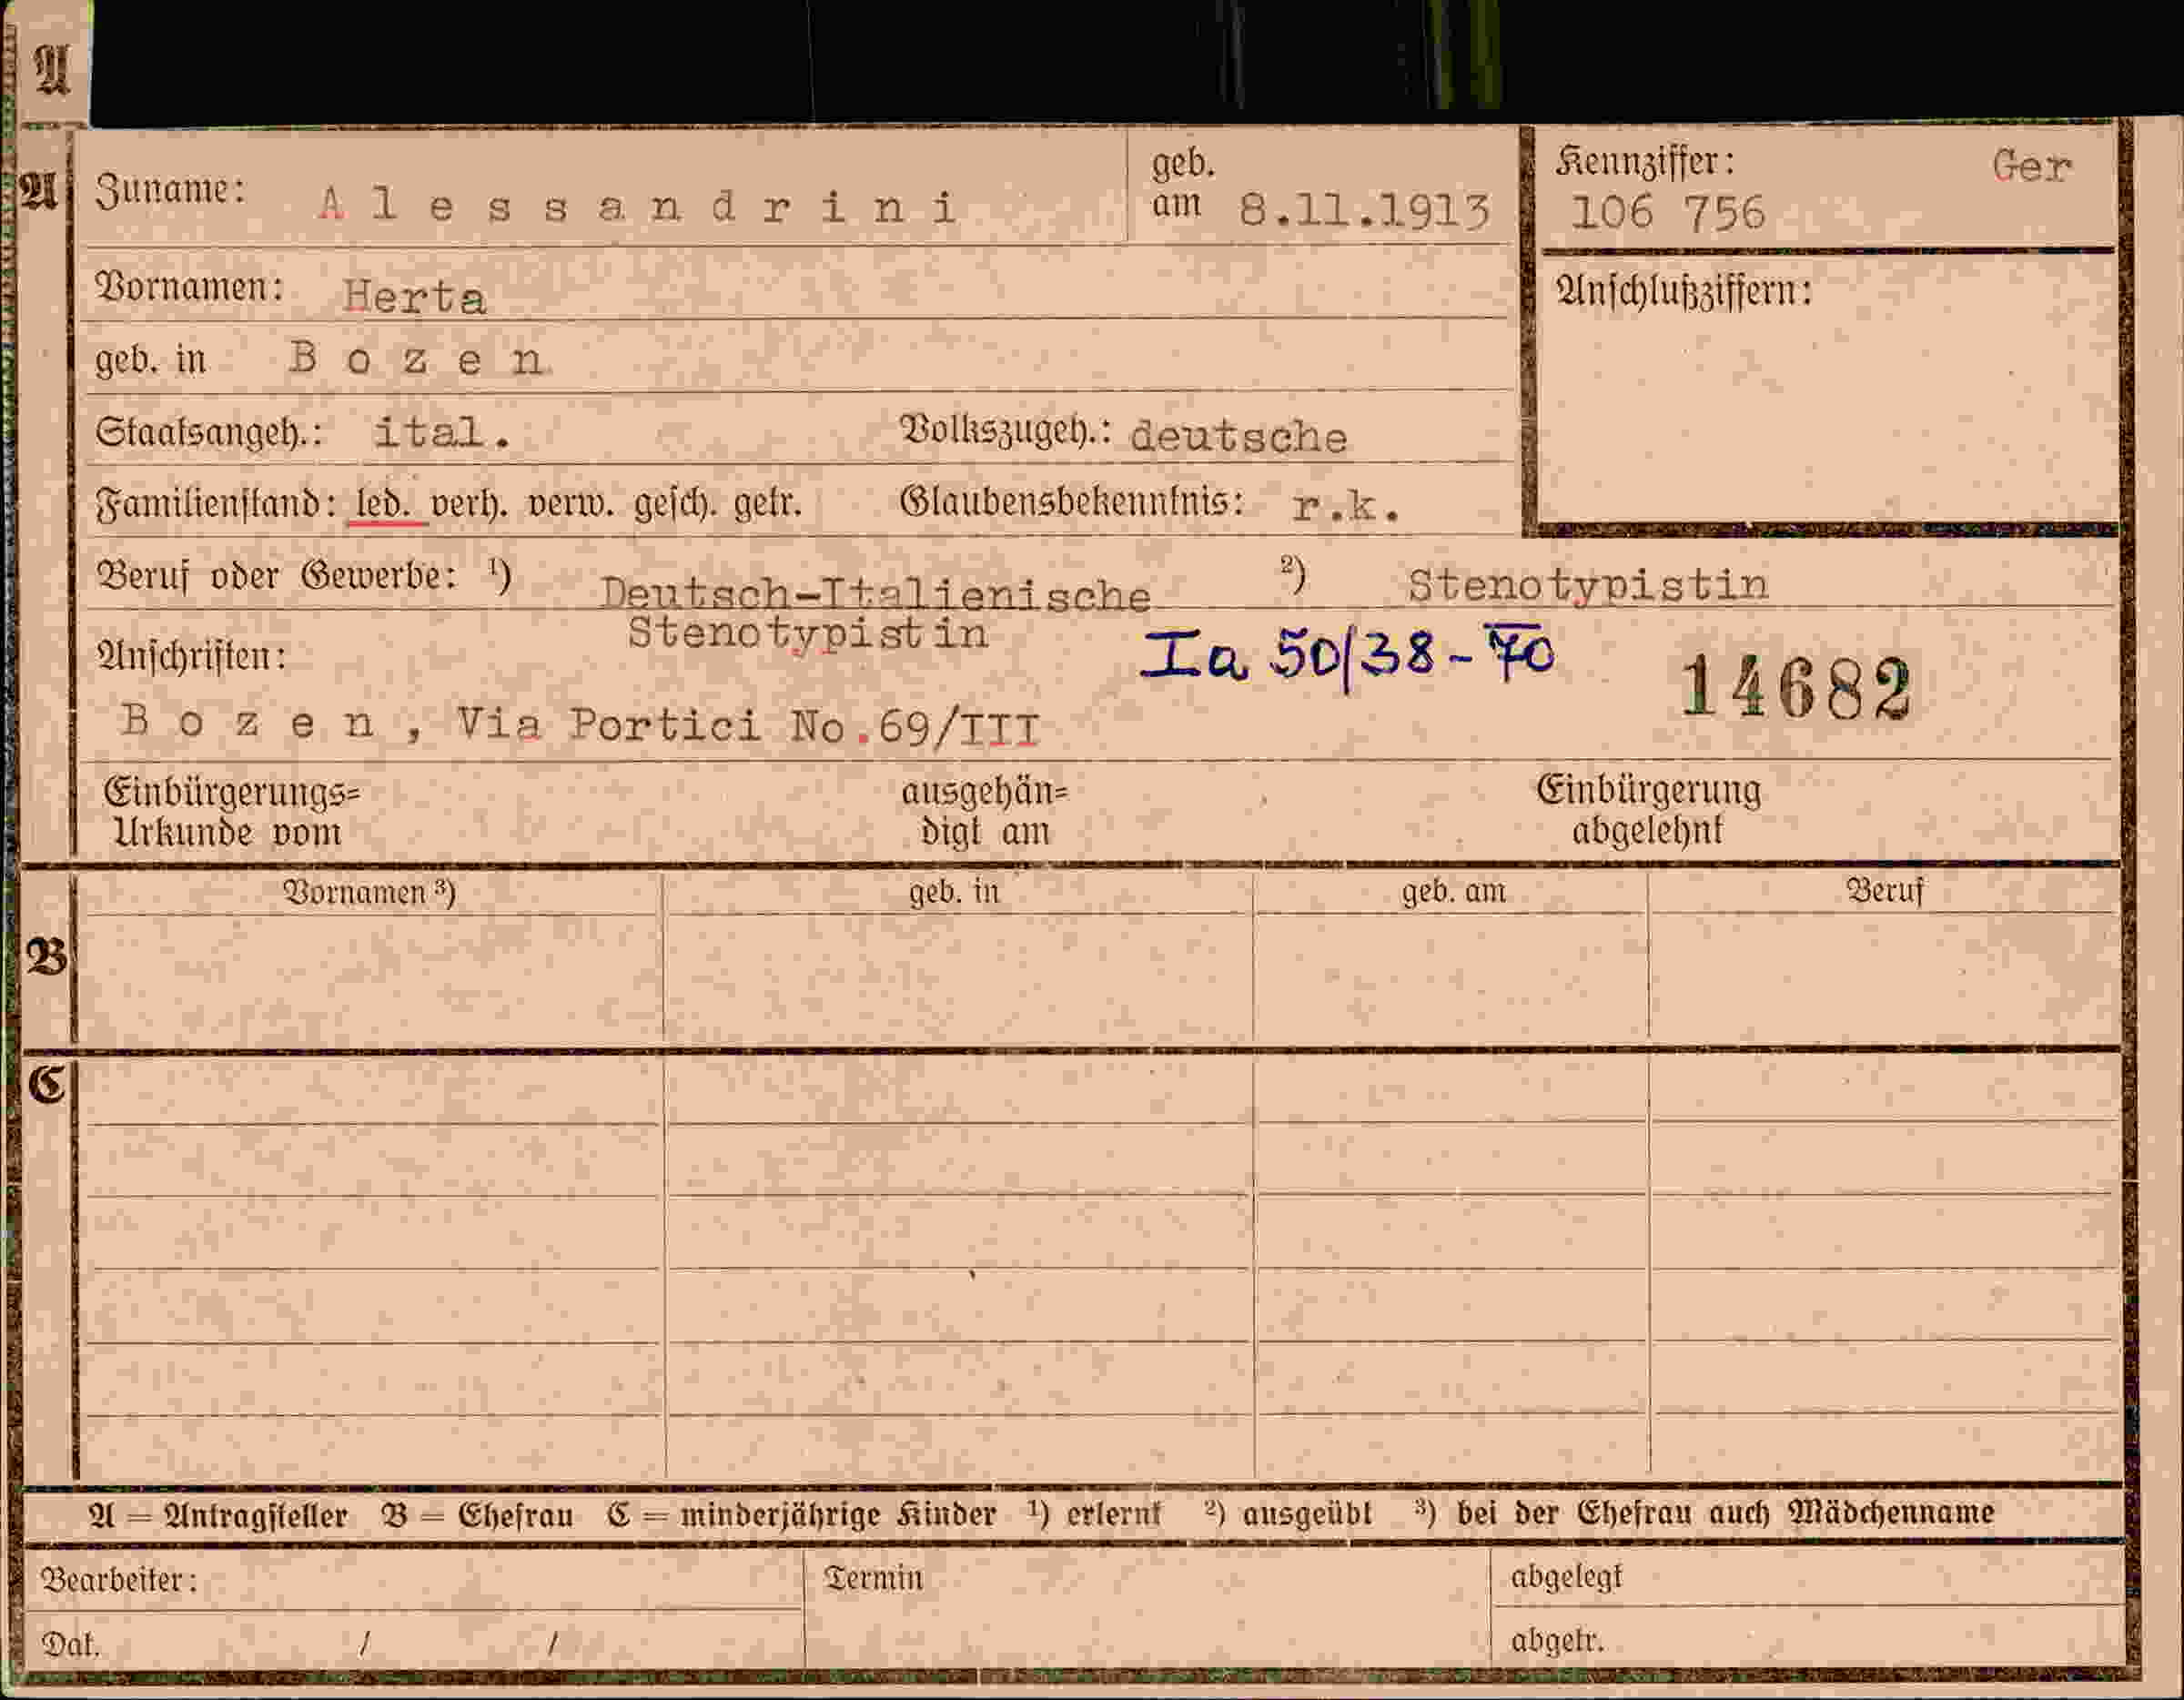 A
A Zuname: Alessandrini geb. am 8.11.1913 Kennziffer: Ger
106 756
Vornamen: Herta Anschlußziffern:
geb. in Bozen
Staatsangeh.: ital. Volkszugeh.: deutsche
Familienstand: led. verh. verw. gesch. getr. Glaubensbekenntnis: r.k.
Beruf oder Gewerbe: 1) Deutsch-Italienische 2) Stenotypistin
Stenotypistin
Anschriften: Ia 50/38-70 14682
Bozen, Via Portici No.69/III
Einbürgerungs= ausgehän= Einbürgerung
Urkunde vom digt am abgelehnt
Vornamen 3) geb. in geb. am Beruf
B
C
A = Antragsteller B = Ehefrau C = minderjährige Kinder 1) erlernt 2) ausgeübt 3) bei der Ehefrau auch Mädchenname
Bearbeiter: Termin abgelegt
Dat. / / abgetr.